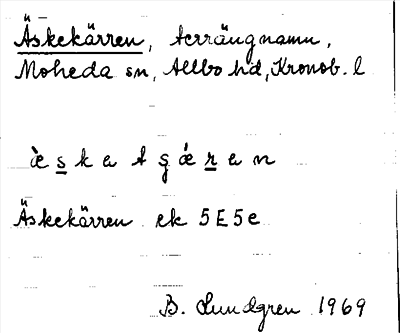 Äskekärren, terrängnamn,
Moheda sn, Allbo hd, Kronob. l
Äskekärren ek 5E5e
B. Lundgren 1969